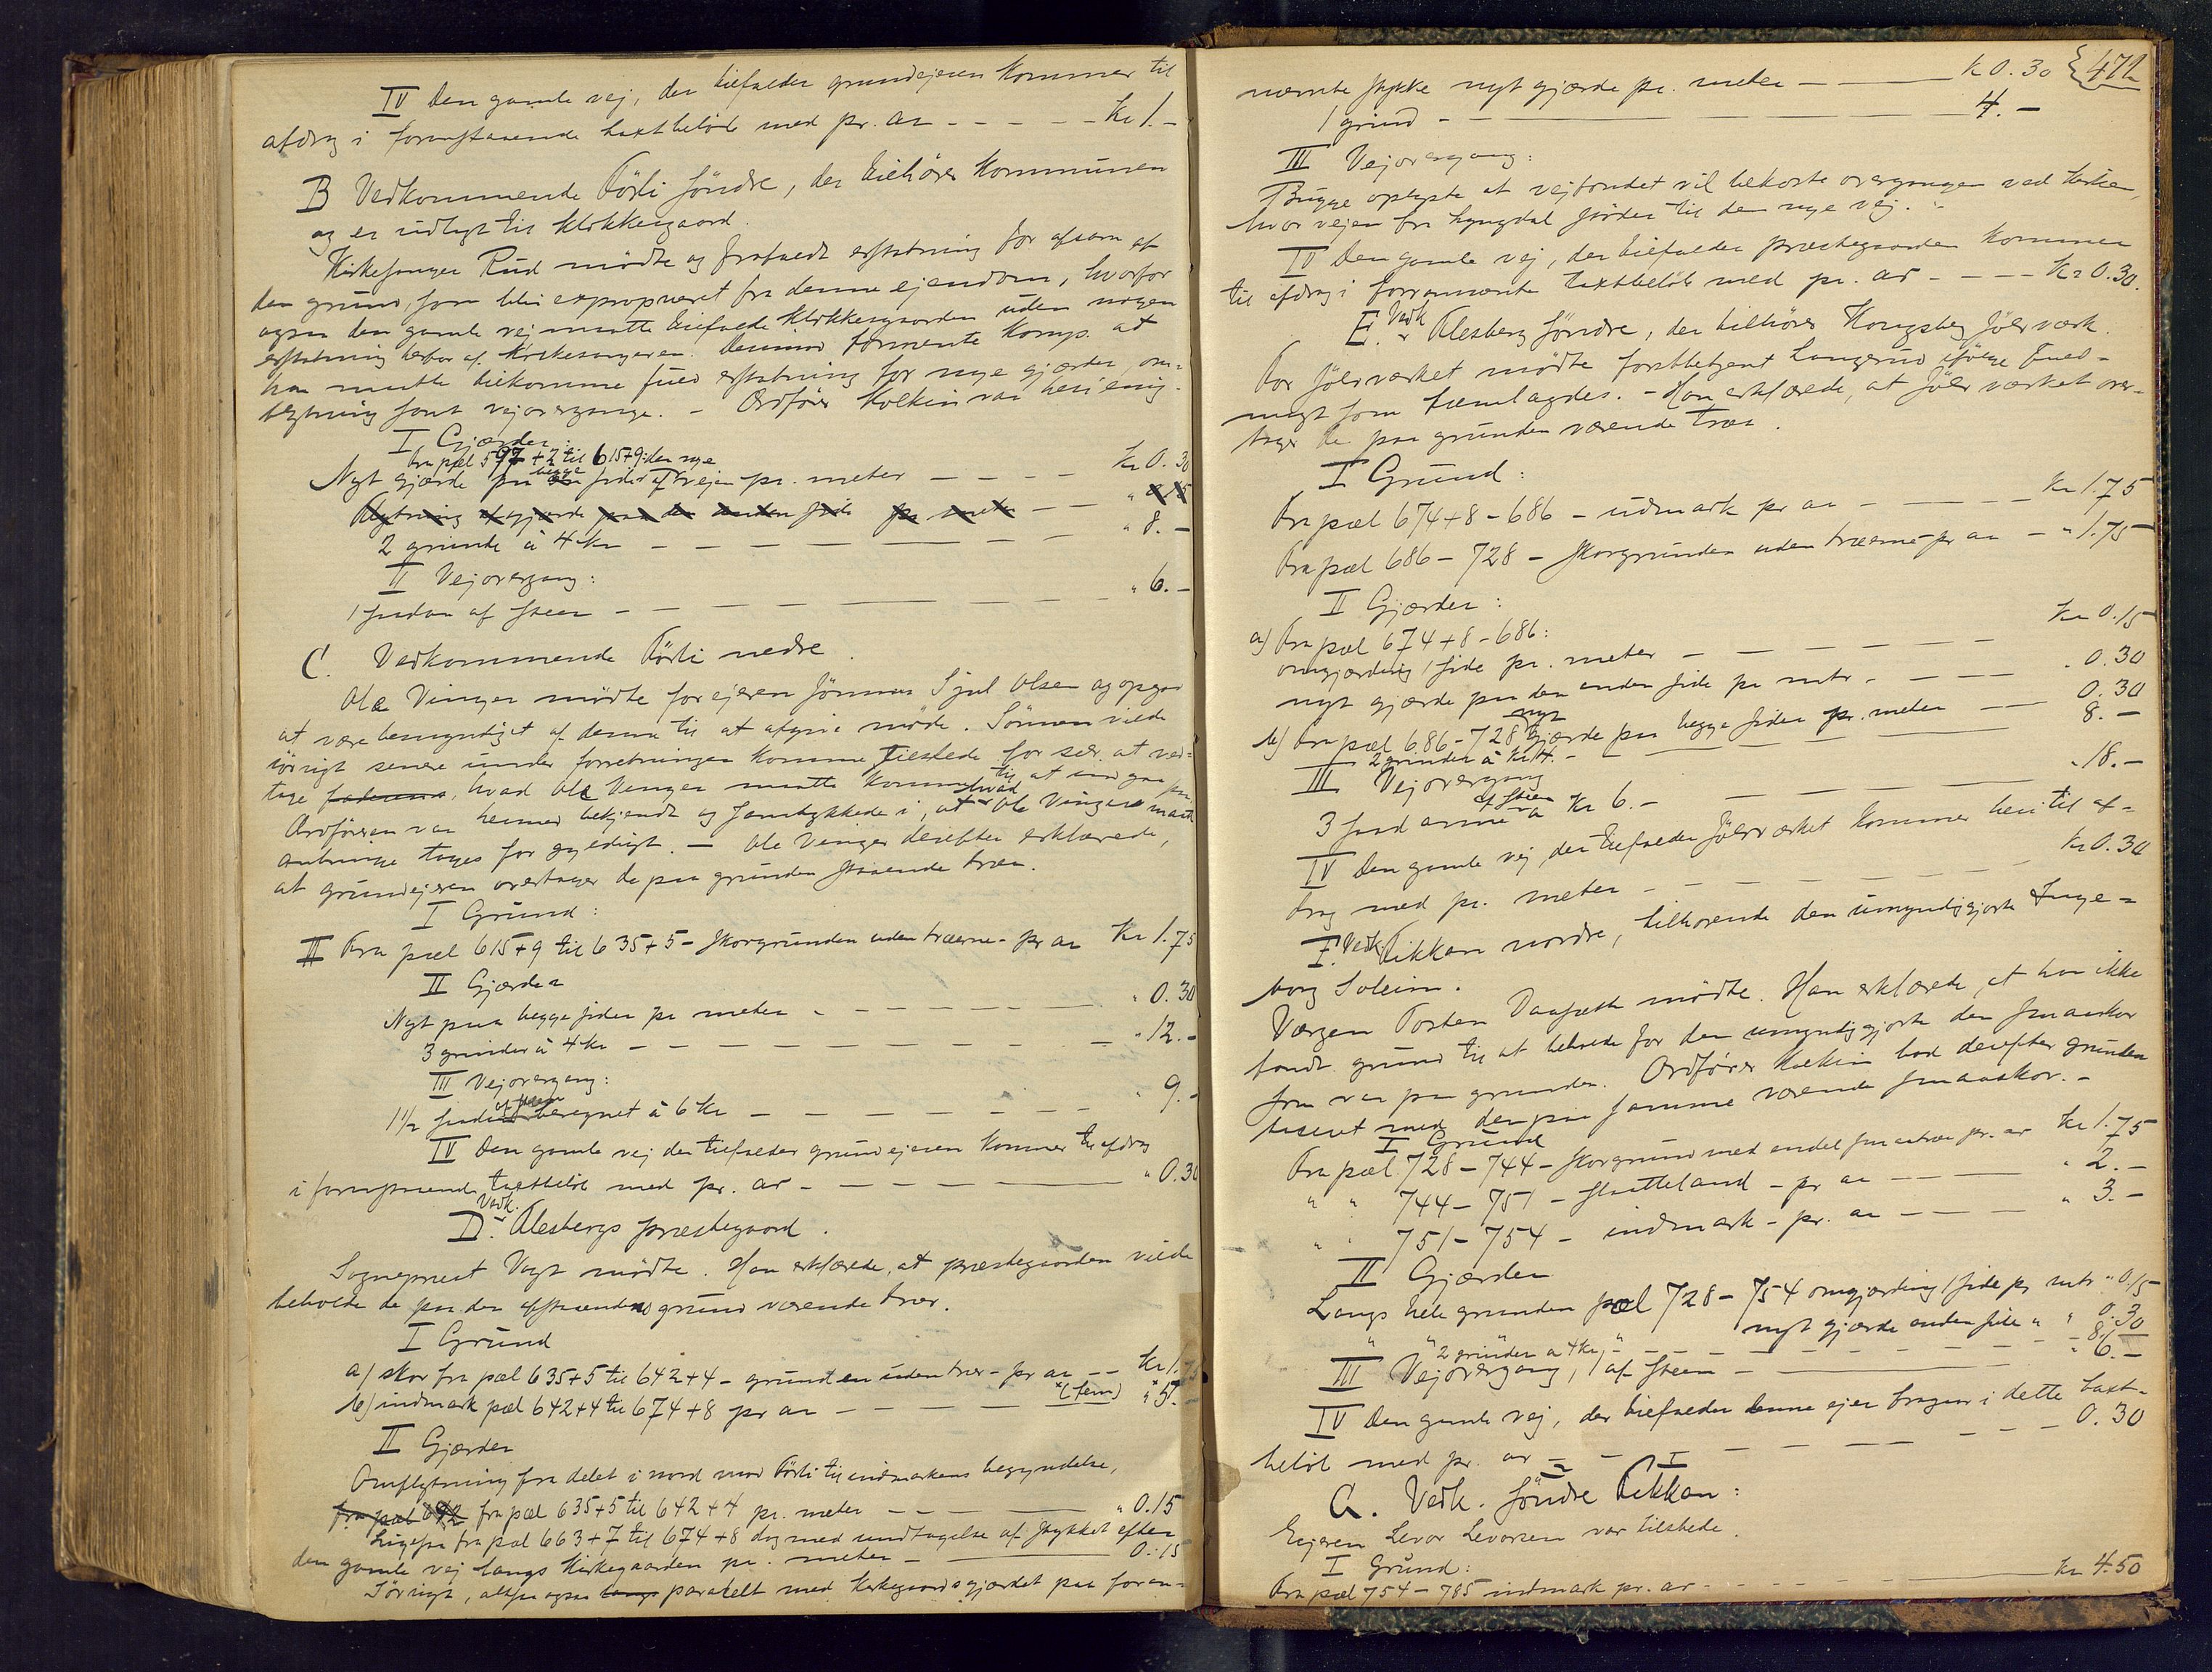 IV Den gamle vej, der tilfalder grundejeren kommer til
afdrag i foranstaaende taxtbeløb med pr. ar - - - - - Kr 1.-
B Vedkommende Førli søndre, der tilhører Kommunen
og er udlagt til Klokkergaard.
Kirkesanger Rud mødte og frafaldt erstatning for afsavn af
den grund, som blir exproprieret fra denne ejendom, hvorfor
ogsaa den gamle vej maatte tilfalde Klokkergaarden uden nogen
erstatning herfor af Kirkesangeren. Derimod formente Komp. at
han maatte tilkomme fuld erstatning for nye gjærder, om-
bygning samt vejovergange. - Ordfører Kolkin var heri enig.
I Gjærder:
fra pæl 597 + 2 til 615+9: den nye
Nyt gjærde paa begge sider af vejen pr. meter - - - - Kr 0.30
Flytning af gjærde paa den anden side pr meter - - " 0.15
2 grinde à 4 kr - - - - - - - - " 8.-
II Vejovergang:
1 saadan af steen - - - - - - - - " 6.-
C. Vedkommende Førli nedre.
Ole Vinger mødte for ejeren Sjul Olsen og opgav
at være bemyndiget af denne til at afgive møde. Sønnen vilde
iøvrigt senere under forretningen komme tilstede for selv at ved-
tage hvad Ole Vinger maatte komme til at indgaa paa
Ordføreren var hermed bekjendt og samtykkede i, at hvad Ole Vinger maatte
anbringe toges for gyldigt. - Ole Vinger derefter erklærede,
at grundejeren overtager de paa grunden staaende trær.
I Grund:
II Fra pæl 615+9 til 635+5 - skovgrunden uden træerne - pr ar Kr 1.75
II Gjærder
Nyt paa begge sider pr meter - - - - - - " 0.30
3 grinder à 4 kr - - - - - - - - - " 12.-
III Vejovergang:
1 1/2 saadan af steen beregnet à 6 kr - - - - - - - " 9.-
IV Den gamle vej der tilfalder grundejeren kommer til afdrag
i foranstaaende taxtbeløb med pr. ar - - - - - " 0.30
D. Vedk. Flesbergs præstegaard.
Sogneprest Vogt mødte. Han erklærede, at præstegaarden vilde
beholde de paa den afstaaende grund værende trær.
I Grund
a) skov fra pæl 635+5 til 642+4 - grunden uden trær - pr ar - - Kr 1.75
b) indmark pæl 642+4 til 674+8 pr ar - - - - - x(fem) " x5.-
II Gjærder
Omflytning fra delet i nord mod Førli til indmarkens begyndelse,
fra pæl 642 fra pæl 635+5 til 642+4 pr. meter - - - " 0.15
Ligesaa fra pæl 663+7 til 674+8 dog med undtagelse af stykket efter
den gamle vej langs Kirkegaarden pr. meter - - - 0.15
Iøvrigt, altsaa ogsaa langs paralelt med kirkegaardsgjærdet paa foran-
472
nævnte stykke nyt gjærde pr. meter - - - Kr 0.30
1 grind - - - - - - - 4.-
III Vejovergang:
Brügge oplyste at vejfondet vil bekoste overgangen ved kirken,
hvor vejen fra Lyngdal støder til den nye vej. -
IV Den gamle vej, der tilfalder præstegaarden kommer
til afdrag i forannævnte taxtbeløb med pr. ar - - - - Kr 0.30.
E. Vedk Flesberg søndre, der tilhører Kongsberg Sølvværk.
For Sølvværket mødte forstbetjent Langerud ifølge fuld-
magt som fremlagdes. - Han erklærede, at Sølvværket over-
tager de paa grunden værende trær.
I Grund:
Fra pæl 674+8 - 686 - udmark pr ar - - - - - Kr 1.75
Fra pæl 686 - 728 - skovgrunden uden træerne pr ar - " 1.75
II Gjærder:
a) Fra pæl 674+8 - 686:
omgjærding 1 side pr. meter - - - - - - Kr 0.15
nyt gjærde paa den anden side pr mtr. - - - - " 0.30
b) Fra pæl 686 - 728 nyt gjærde paa begge sider pr. meter - - 0.30
2 grinder à Kr 4. - - - - - - 8.-
III Vejovergang
3 saadanne af steen à Kr 6.- - - - - - - " 18.-
IV Den gamle vej der tilfalder Sølvværket kommer heri til af-
drag med pr. meter - - - - - - - Kr 0.30
F. Vedk. Fikkan nordre, tilhørende den umyndiggjorte Inge-
borg Soleim.
Værgen Torsten Daaset mødte. Han erklærede, at han ikke
fandt grund til at beholde for den umyndiggjorte den smaaskov
som var paa grunden. Ordfører Kolkin bad derefter grunden
taxeret med den paa samme værende smaaskov. -
I Grund
Fra pæl 728 - 744 - skovgrund med endel smaatrær pr. ar Kr 1.75
" " 744 - 751 - slaatteland - pr ar - - - - " 2.-
" " 751 - 754 - indmark - pr. ar - - - - " 3.-
II Gjærder
Langs hele grunden pæl 728 - 754 omgjærding 1 side pr mtr " 0.15
" " nyt gjærde anden side " " 0.30
2 grinder a 4 kr, - - - - - - 8.-
III Vejovergang, 1 af steen - - - - " 6.-
IV Den gamle vej, der tilfalder denne ejer fragaar i dette taxt-
beløb med pr. ar - - - - - - - 0.30
G. Vedk. søndre Fikkan:
Ejeren Levor Levorsen var tilstede.
I Grund:
Fra pæl 754 - 785 indmark pr. ar - - - - - Kr 4.50